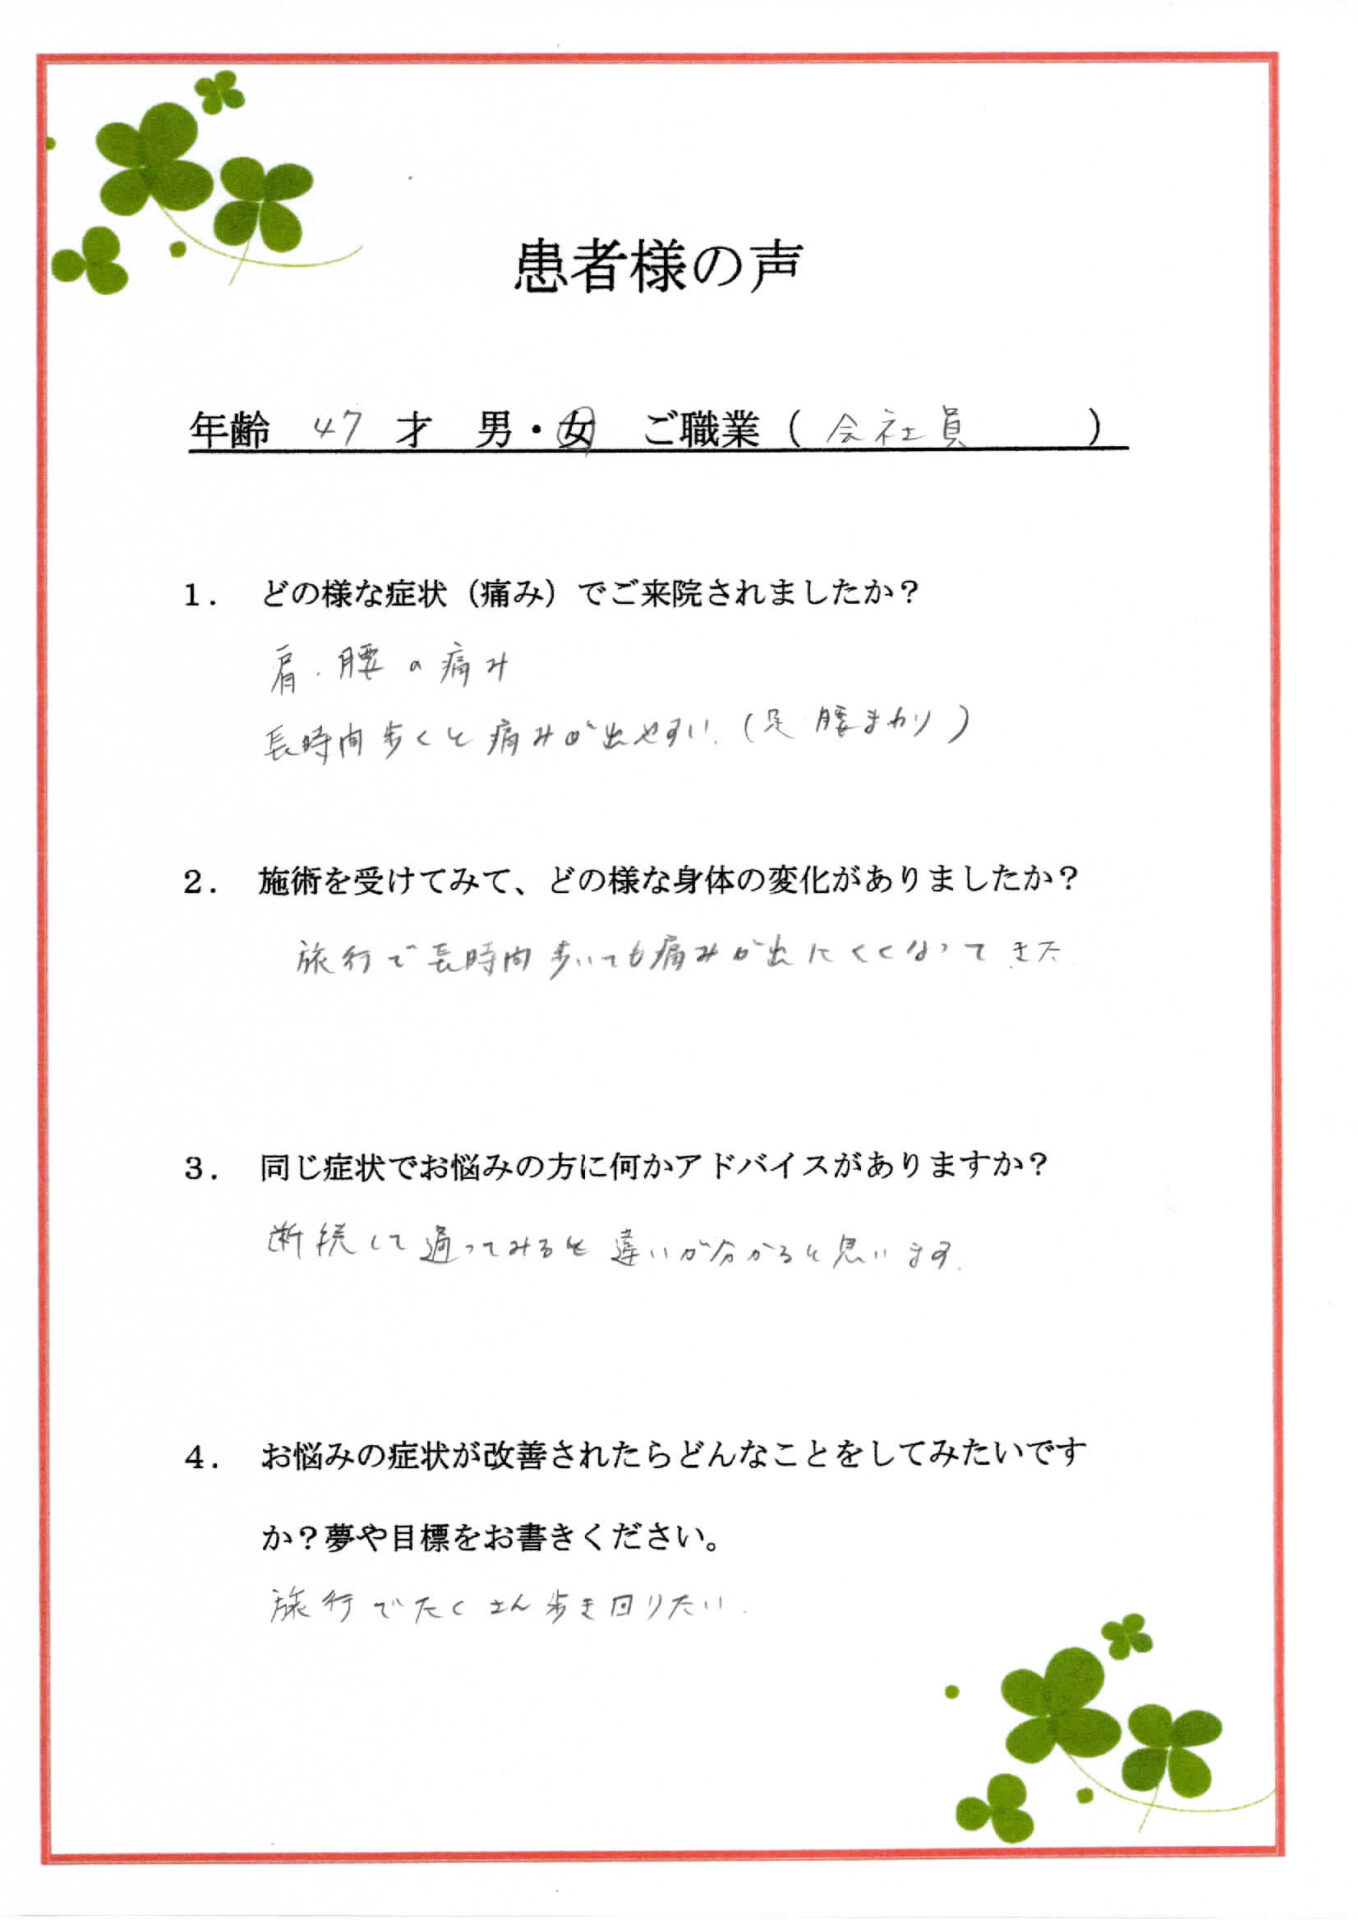 患者様の声
年齢 47 才 男・女 ご職業（ 会社員 ）
1. どの様な症状（痛み）でご来院されましたか？
肩・腰の痛み
長時間歩くと痛みが出やすい.（足 腰まわり）
2. 施術を受けてみて、どの様な身体の変化がありましたか？
旅行で長時間歩いても痛みが出にくくなってきた
3. 同じ症状でお悩みの方に何かアドバイスがありますか？
断続して通ってみると違いが分かると思います.
4. お悩みの症状が改善されたらどんなことをしてみたいです
か？夢や目標をお書きください。
旅行でたくさん歩き回りたい.